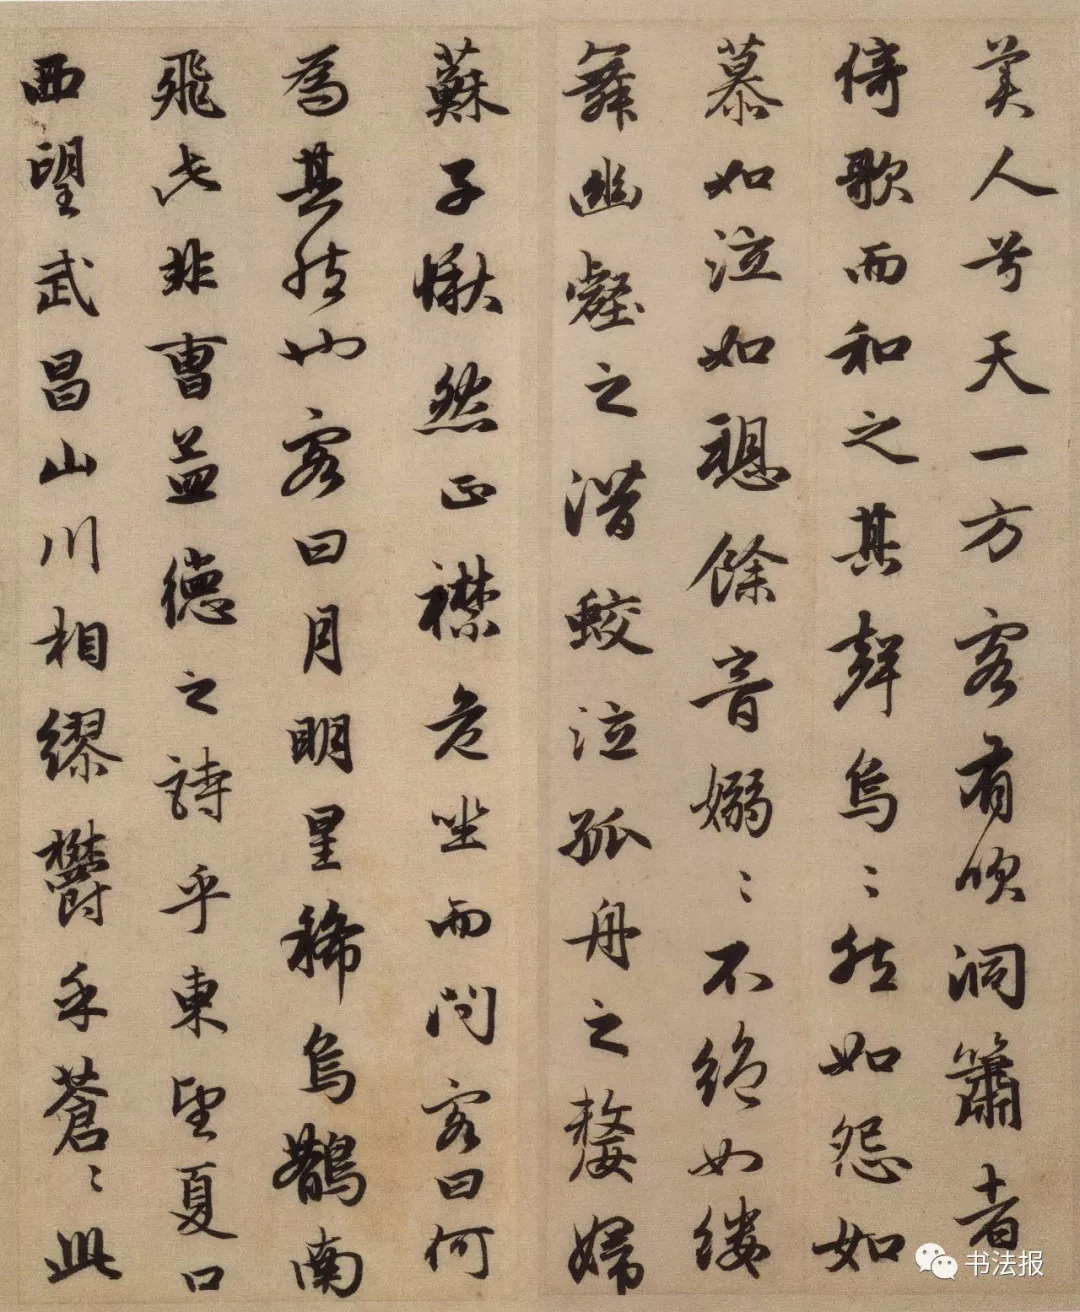 美人兮天一方客有吹洞簫者
倚歌而和之其聲烏〻然如怨如
慕如泣如聽餘音嫋〻不絕如縷
舞幽壑之潛蛟泣孤舟之嫠婦
蘇子愀然正襟危坐而問客曰何
為其然也客曰月明星稀烏鵲南
飛此非曹益德之詩乎東望夏口
西望武昌山川相繆鬱乎蒼〻此
书法报